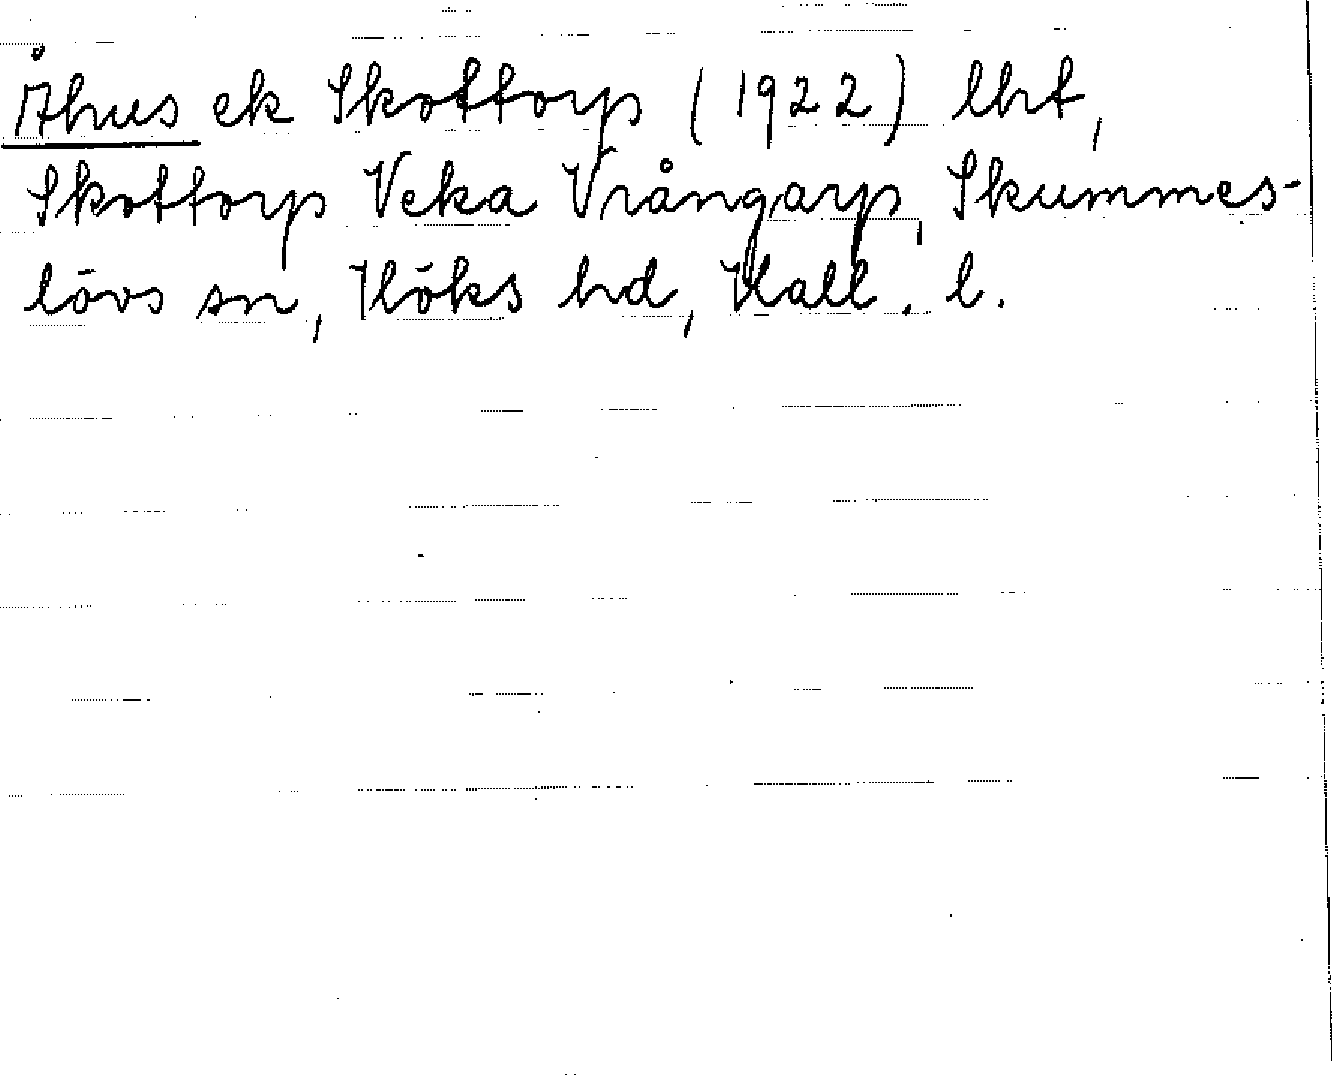 Åhus ek Skottorp (1922) lht,
Skottorp Veka Vrångarp, Skummes-
lövs sn, Höks hd, Hall. l.